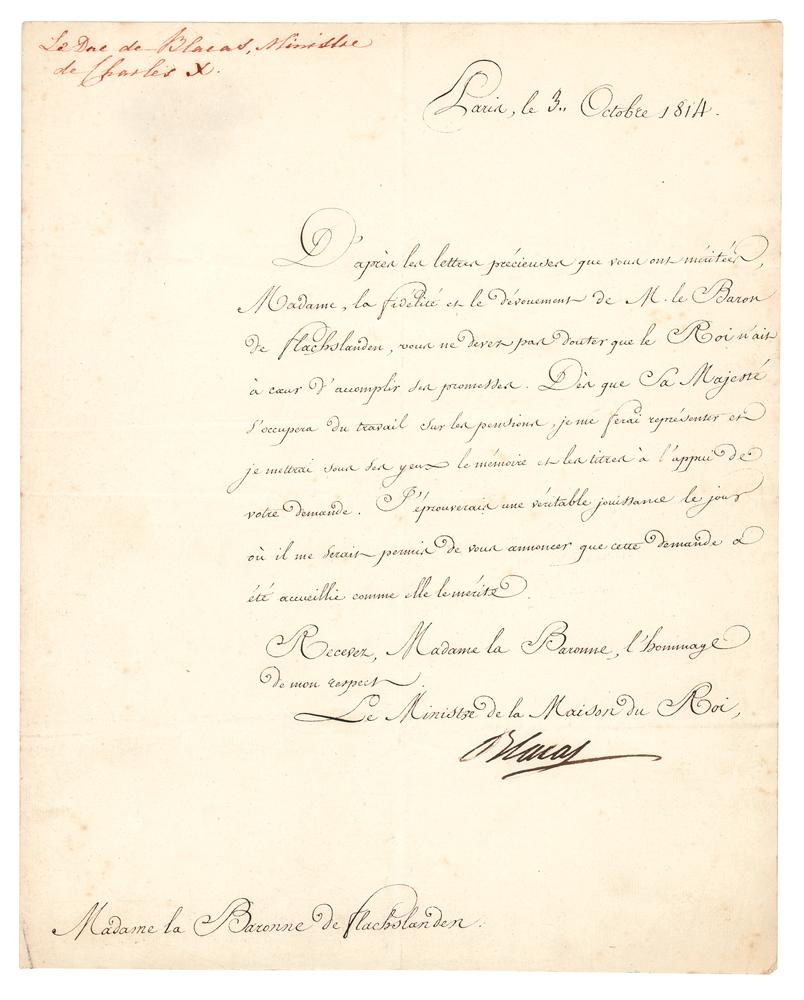 Le Duc de Blacas, Ministre
de Charles X.
Paris, le 3.. Octobre 1814.
D'après les lettres précieuses que vous ont méritées,
Madame, la fidélité et le dévouement de M. le Baron
de flachslanden, vous ne devez pas douter que le Roi n'ait
à cœur d'accomplir ses promesses. Dès que Sa Majesté
s'occupera du travail sur les pensions, je me ferai représenter et
je mettrai sous ses yeux le mémoire et les titres à l'appui de
votre demande. J'éprouverais une véritable jouissance le jour
où il me serait permis de vous annoncer que cette demande a
été accueillie comme elle le mérite.
Recevez, Madame la Baronne, l'hommage
de mon respect.
Le Ministre de la Maison du Roi,
Blacas
Madame la Baronne de flachslanden.